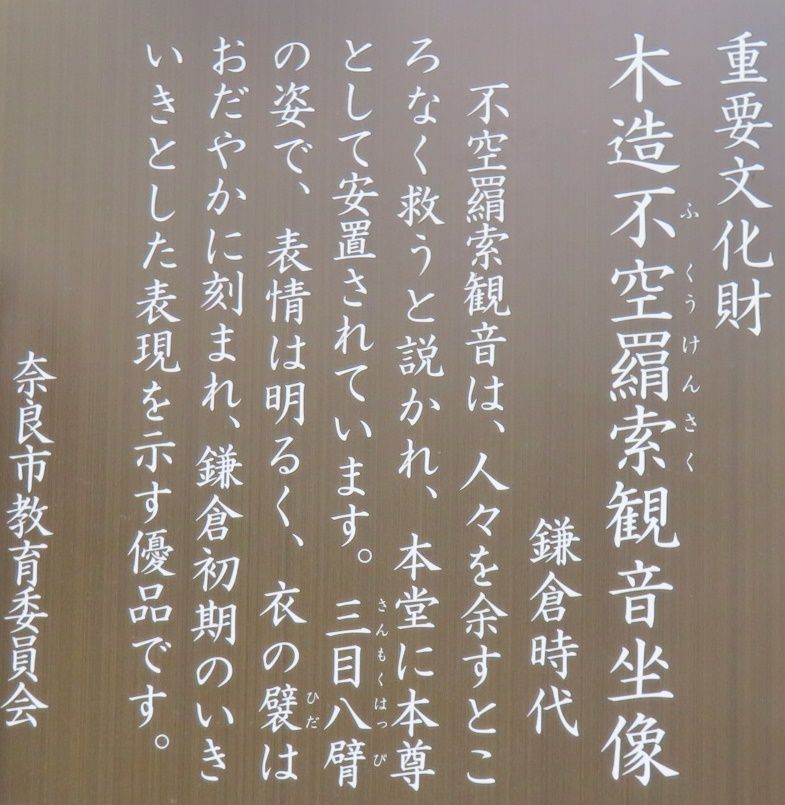 重要文化財
木造不空羂索観音坐像
ふくうけんさく
鎌倉時代
不空羂索観音は、人々を余すとこ
ろなく救うと説かれ、本堂に本尊
として安置されています。三目八臂
さんもくはっぴ
の姿で、表情は明るく、衣の襞は
ひだ
おだやかに刻まれ、鎌倉初期のいき
いきとした表現を示す優品です。
奈良市教育委員会